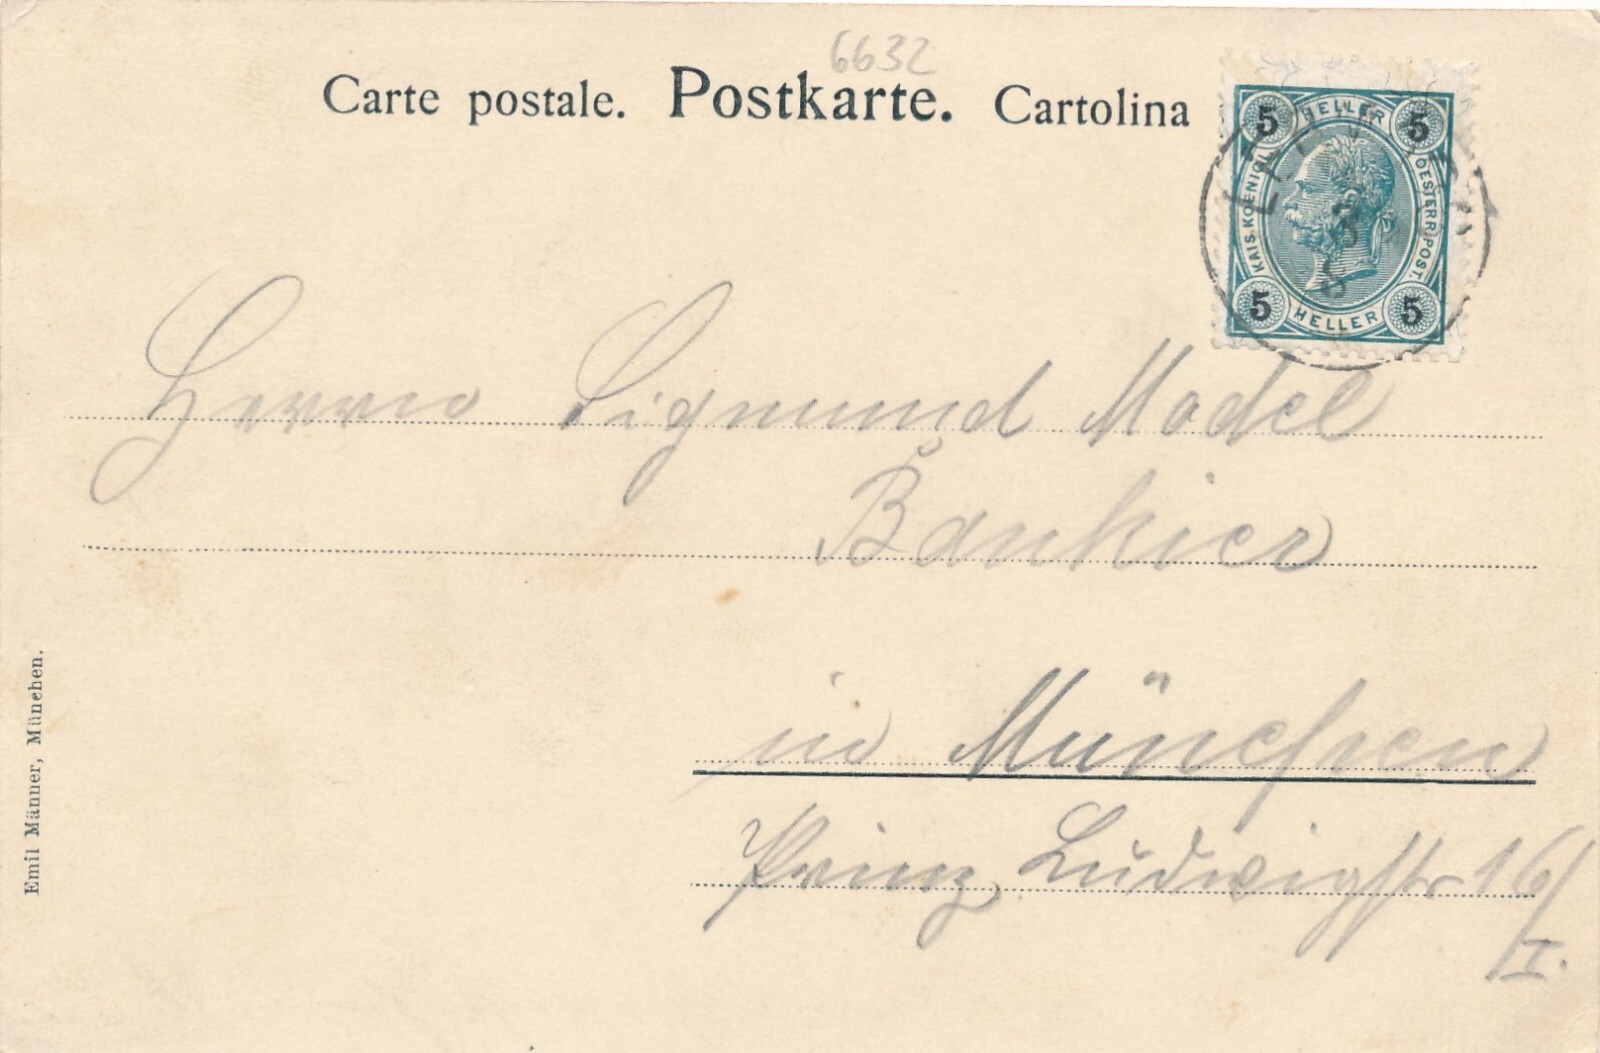 6632
Carte postale. Postkarte. Cartolina
5 HELLER 5
KAIS. KOENIGL. OESTERR. POST.
5 HELLER 5
Herrn Sigmund Model
Bankier
in München
Prinz Ludwigstr 16/I.
Emil Männer, München.